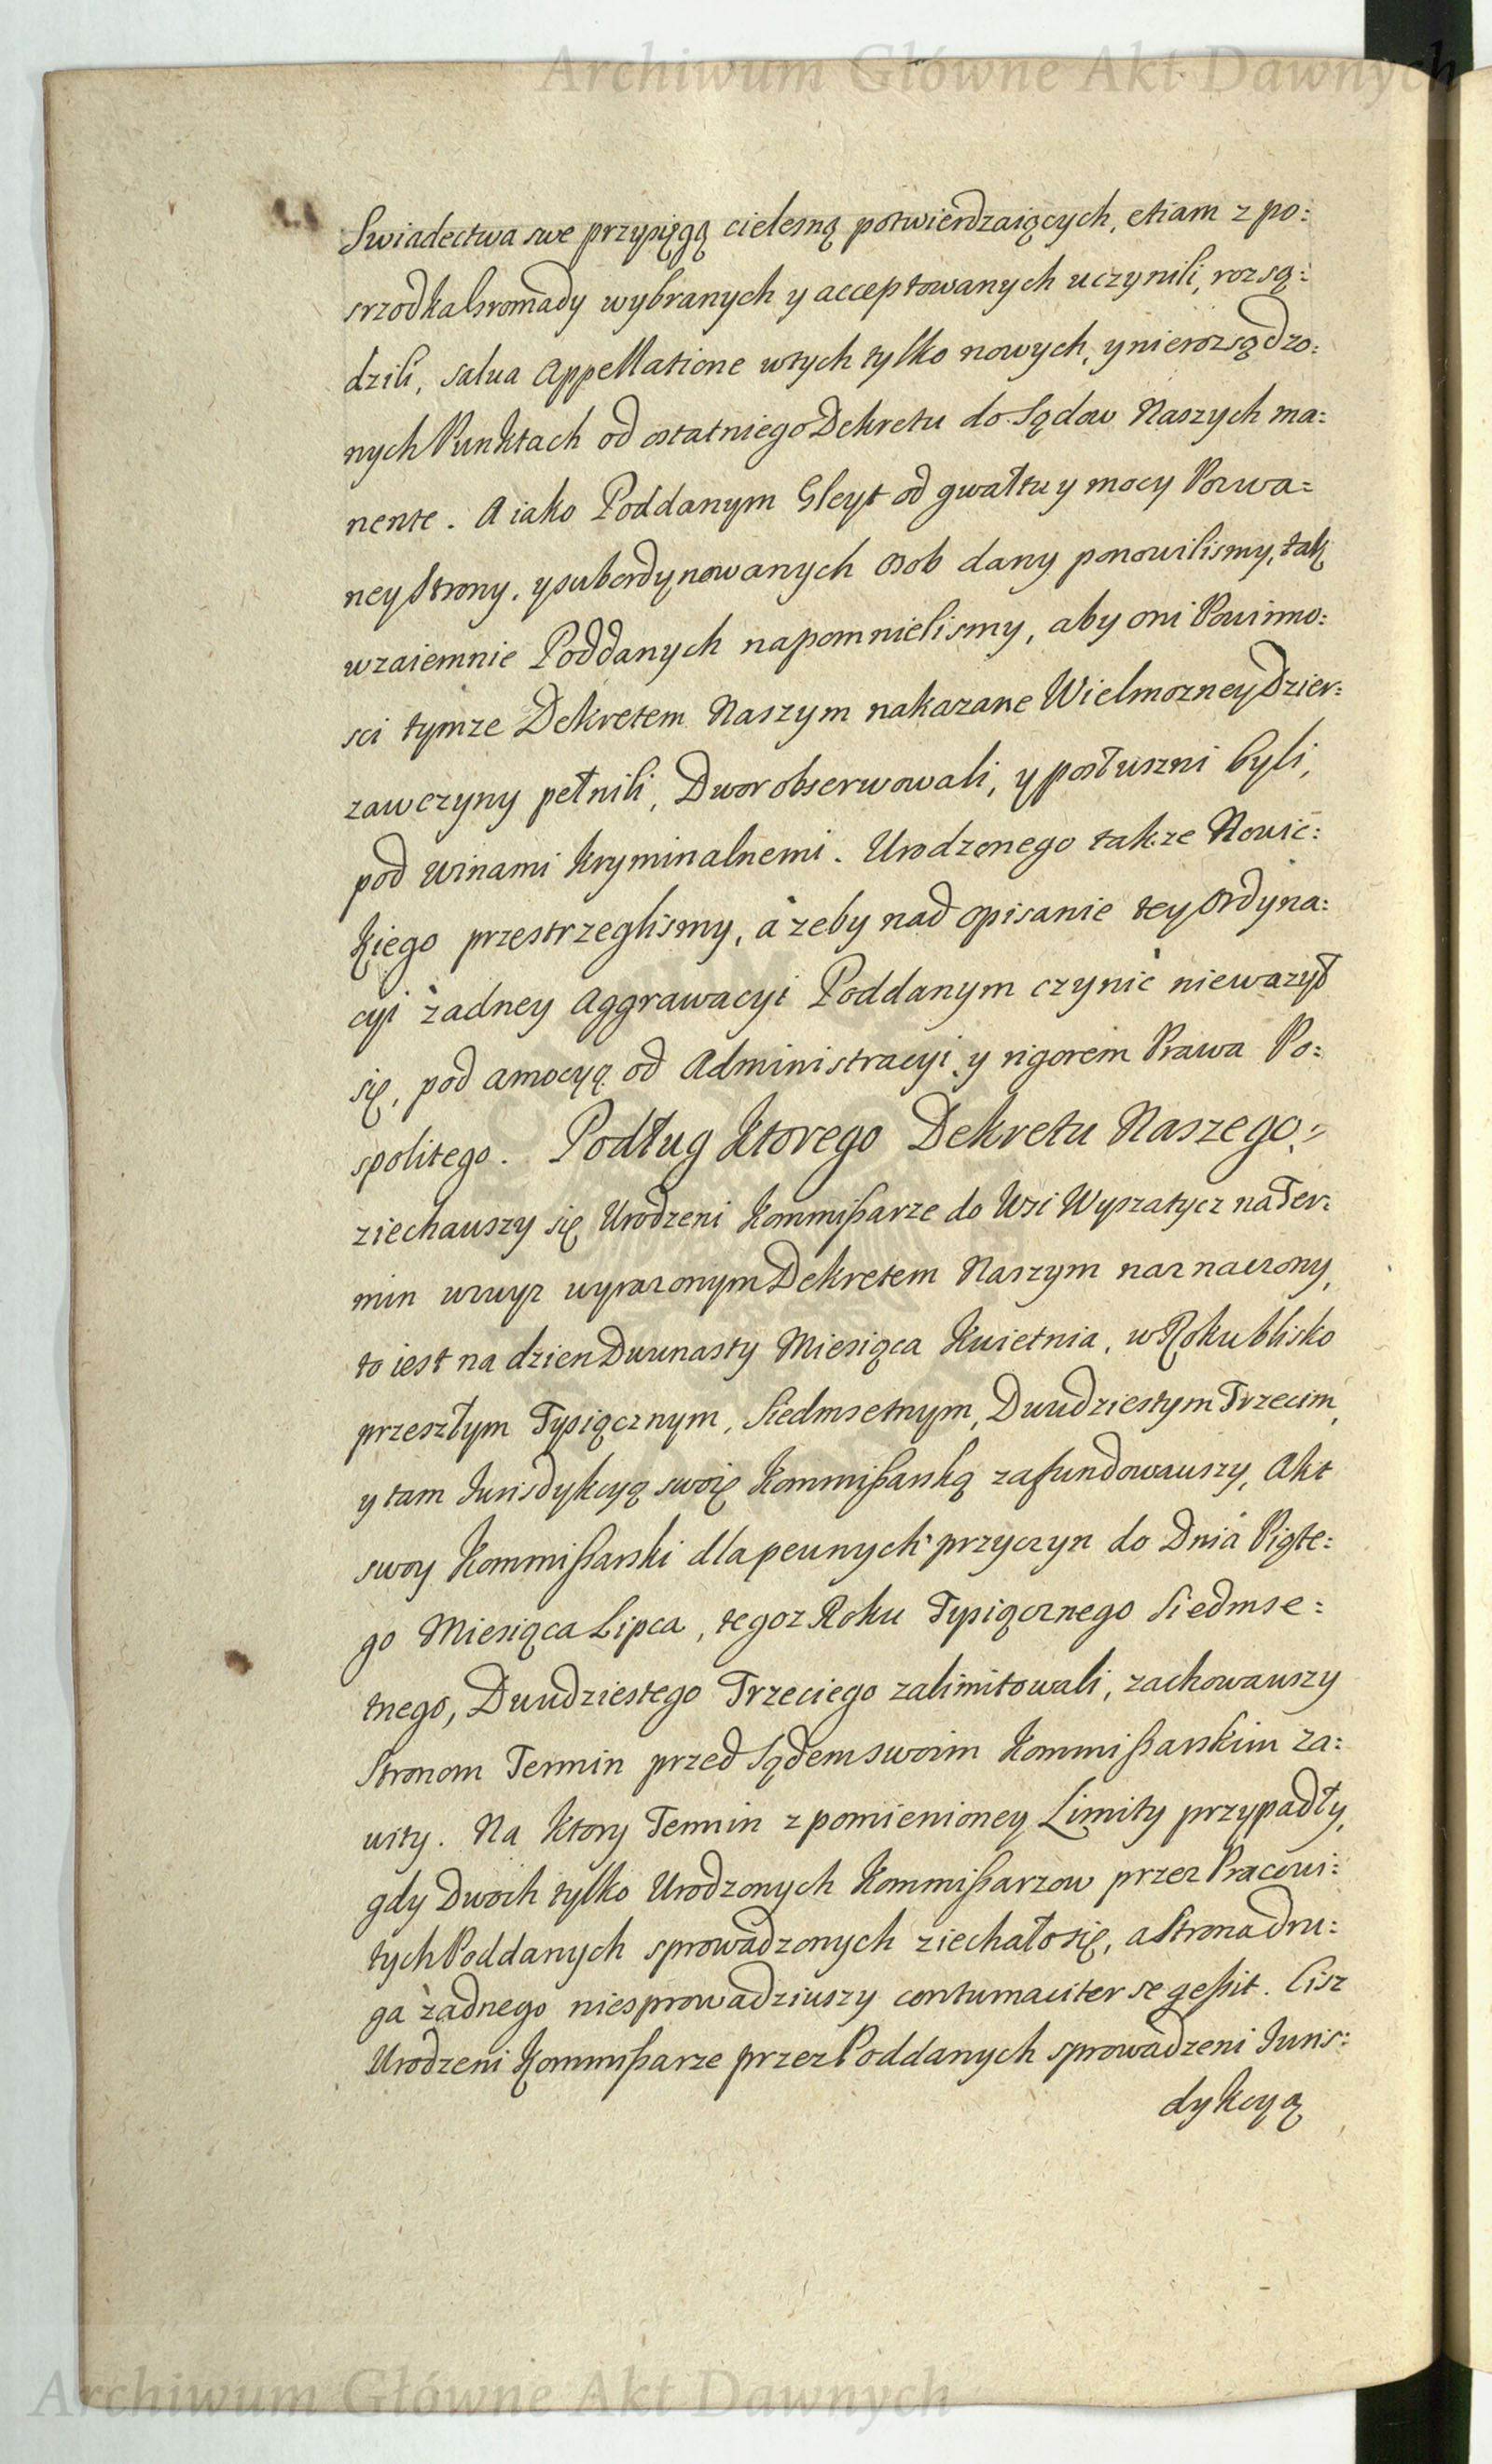 Archiwum Główne Akt Dawnych
Swiadectwa swe przysięgą cielesną potwierdzaiących, etiam z po:
srzodka Gromady wybranych y acceptowanych uczynili, rozsą:
dzili, salua Appellatione wtych tylko nowych, y nierozsądzo:
nych Punktach od ostatniego Dekretu do Sądow Naszych ma:
nente. A iako Poddanym Gleyt od gwałtu y mocy Pozwa=
ney Strony, y subordynowanych osob dany ponowilismy, tak
wzaiemnie Poddanych napomnielismy, aby oni Powinno:
sci tymze Dekretem Naszym nakazane Wielmozney Dzier:
zawczyny pełnili, Dwor obserwowali, y posłuszni byli,
pod winami kryminalnemi. Urodzonego takze Nowic:
kiego przestrzeglismy, ażeby nad opisanie tey Ordyna:
cyi żadney Aggrawacyi Poddanym czynić nieważył
się, pod amocyą od Administracyi y rigorem Prawa Po:
spolitego. Podług Ktorego Dekretu Naszego,
ziechauszy się Urodzeni Kommißarze do Wsi Wyszatycz na Ter:
min wzwyz wyrazonym Dekretem Naszym naznaczony,
to iest na dzien Dwunasty Miesiąca Kwietnia, w Roku blisko
przeszłym Tysiącznym, Siedmsetnym, Dwudziestym Trzecim,
y tam Jurisdykcyą swoię Kommißarską zafundowauszy, Akt
swoy Kommißarski dla pewnych przyczyn do Dnia Piąte:
go Miesiąca Lipca, tegoz Roku Tysiącznego Siedmse:
tnego, Dwudziestego Trzeciego zalimitowali, zachowauszy
Stronom Termin przed Sądem swoim Kommißarskim za:
wity. Na Ktory Termin z pomienioney Limity przypadły,
gdy Dwoch tylko Urodzonych Kommißarzow przez Pracowi:
tych Poddanych sprowadzonych ziechało się, a Strona dru:
ga żadnego niesprowadziuszy contumaciter se geßit. Cisz
Urodzeni Kommißarze przez Poddanych sprowadzeni Juris:
dykcyą
Archiwum Główne Akt Dawnych